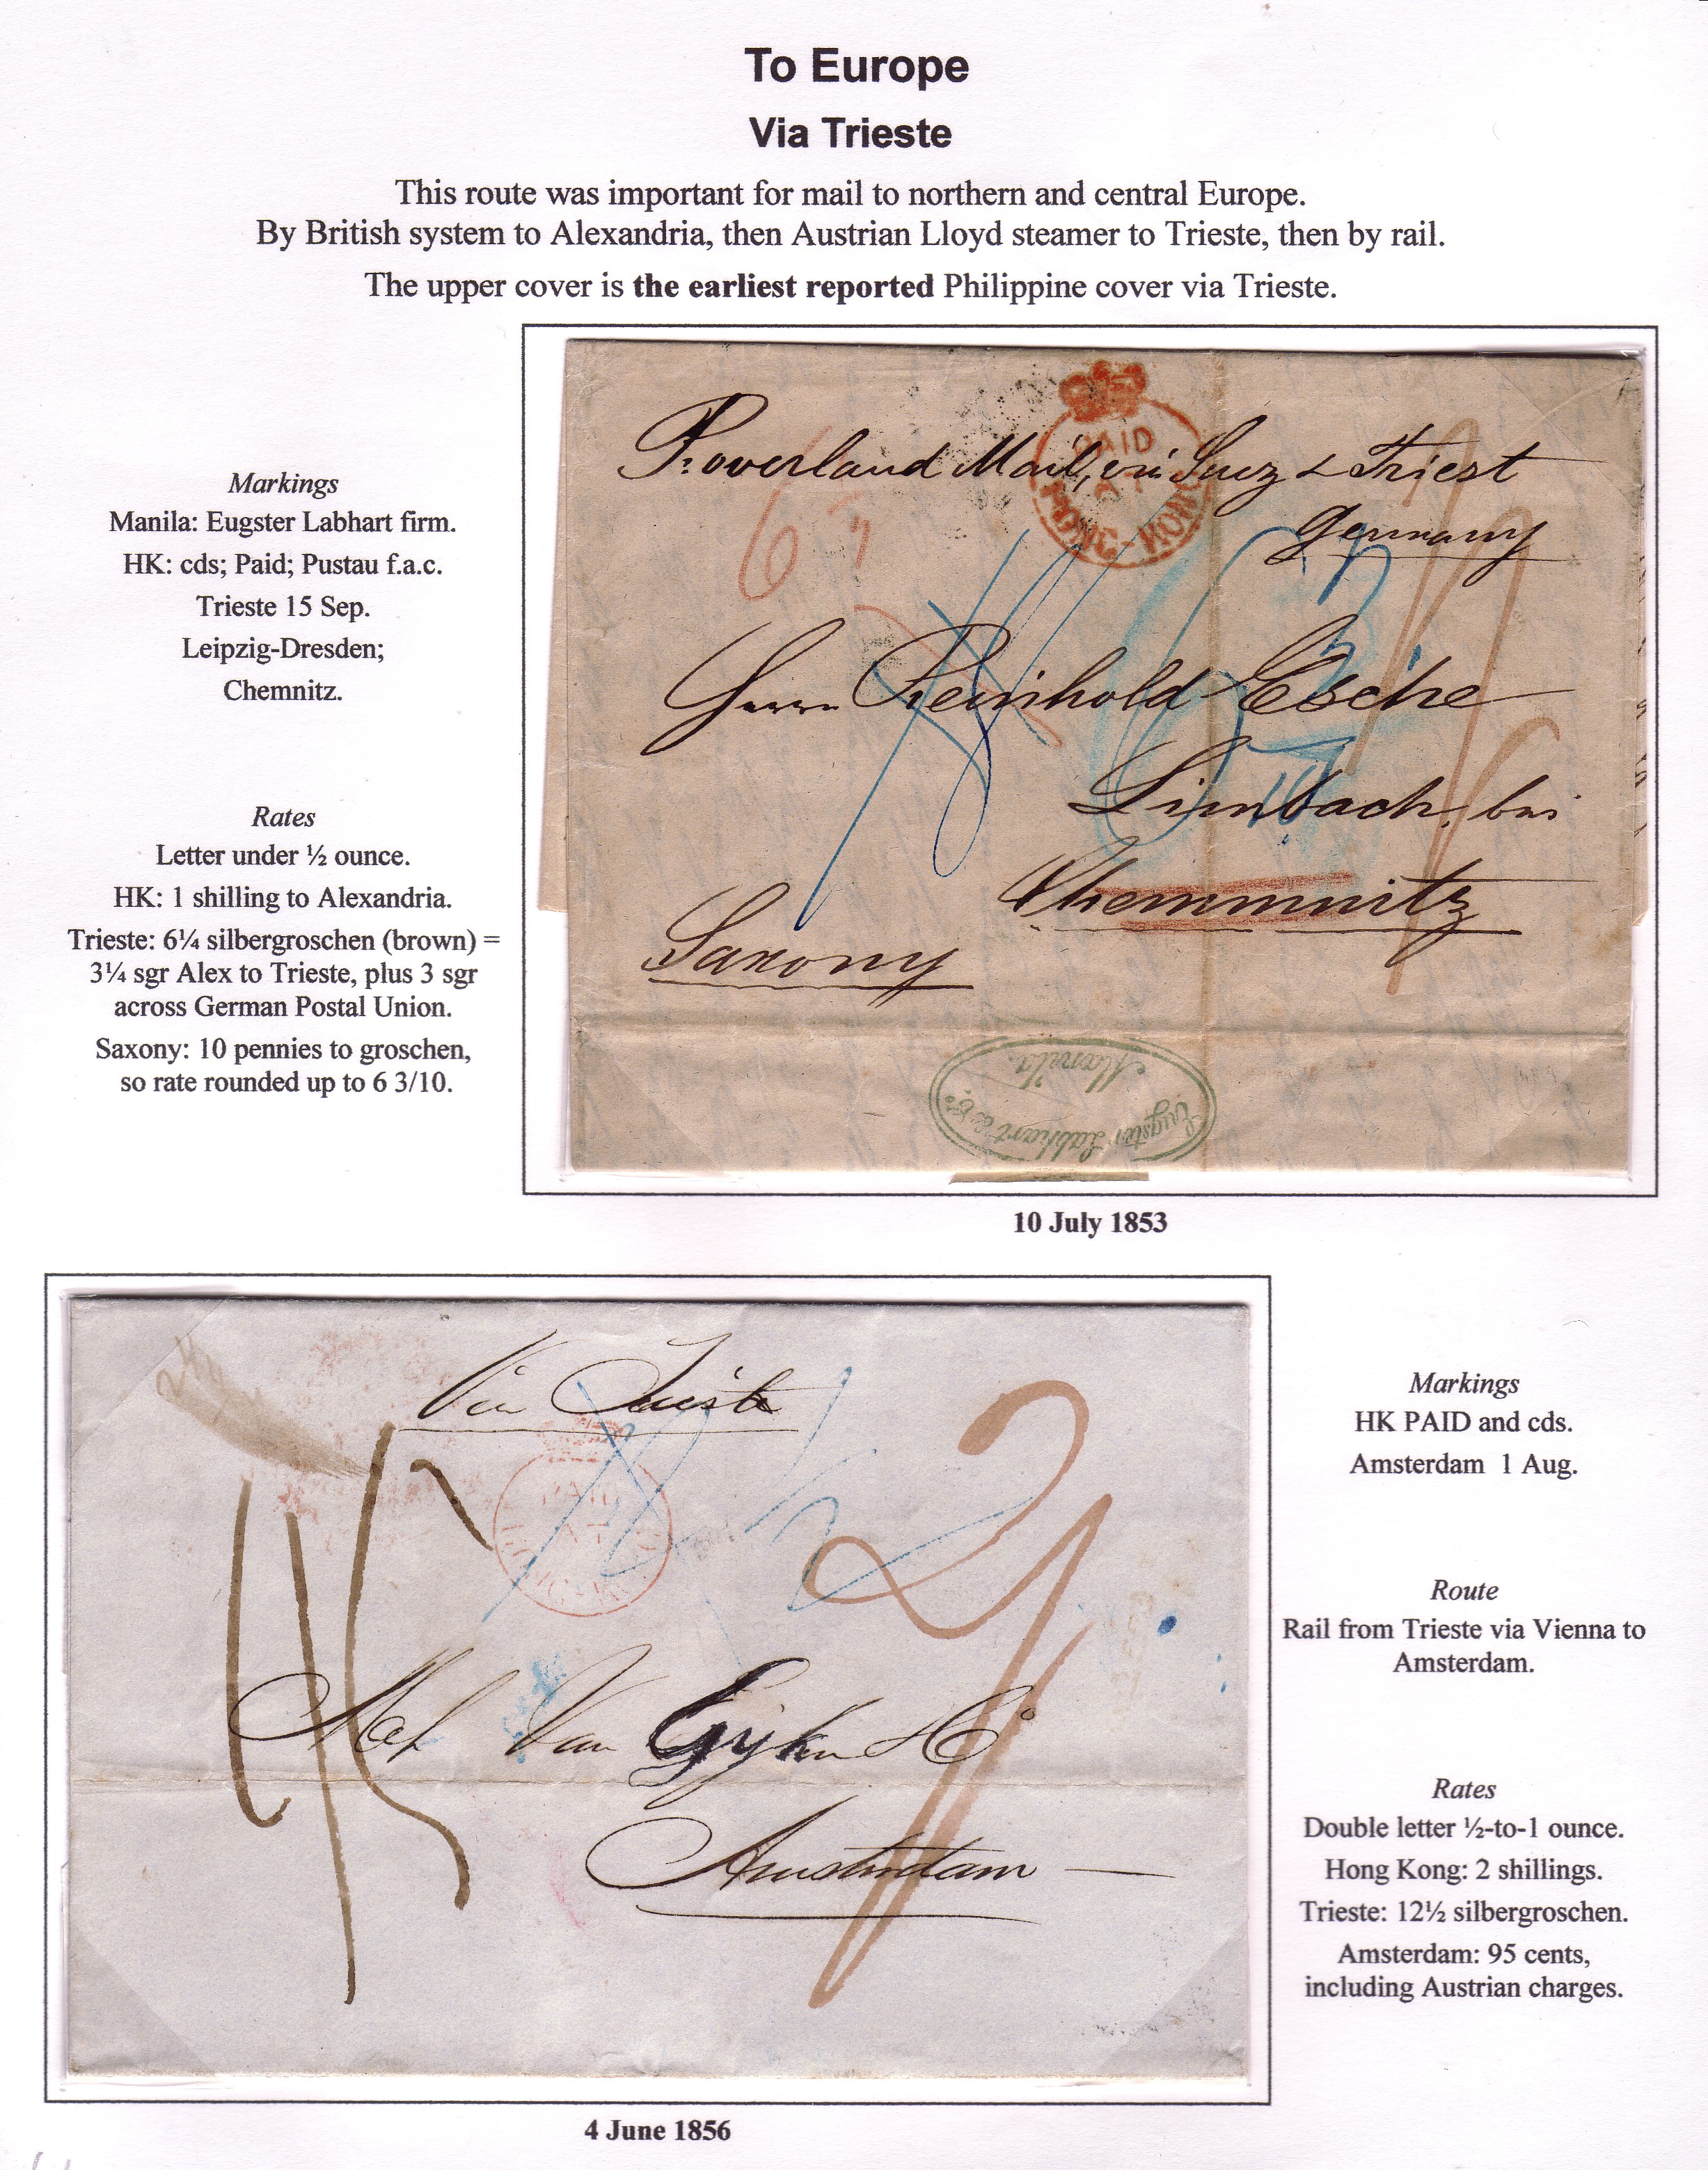 To Europe
Via Trieste
This route was important for mail to northern and central Europe.
By British system to Alexandria, then Austrian Lloyd steamer to Trieste, then by rail.
The upper cover is the earliest reported Philippine cover via Trieste.
Markings
Manila: Eugster Labhart firm.
HK: cds; Paid; Pustau f.a.c.
Trieste 15 Sep.
Leipzig-Dresden;
Chemnitz.
Rates
Letter under ½ ounce.
HK: 1 shilling to Alexandria.
Trieste: 6¼ silbergroschen (brown) =
3¼ sgr Alex to Trieste, plus 3 sgr
across German Postal Union.
Saxony: 10 pennies to groschen,
so rate rounded up to 6 3/10.
PAID
HONG-KONG
Pr overland Mail, via Suez & Triest
Germany
Herrn Reinhold Esche
Limbach, bei
Chemmnitz
Saxony
Eugster Labhart & Co.
Manila.
10 July 1853
Via Trieste
PAID
HONG-KONG
Van Eyk & Co
Amsterdam
4 June 1856
Markings
HK PAID and cds.
Amsterdam 1 Aug.
Route
Rail from Trieste via Vienna to
Amsterdam.
Rates
Double letter ½-to-1 ounce.
Hong Kong: 2 shillings.
Trieste: 12½ silbergroschen.
Amsterdam: 95 cents,
including Austrian charges.